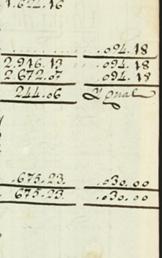 1.624.16
.094.18
2.916.13 .094.18
2.672.07 .094.18
244.06 Ygual
.675.23. .030.00
675.23. .030.00